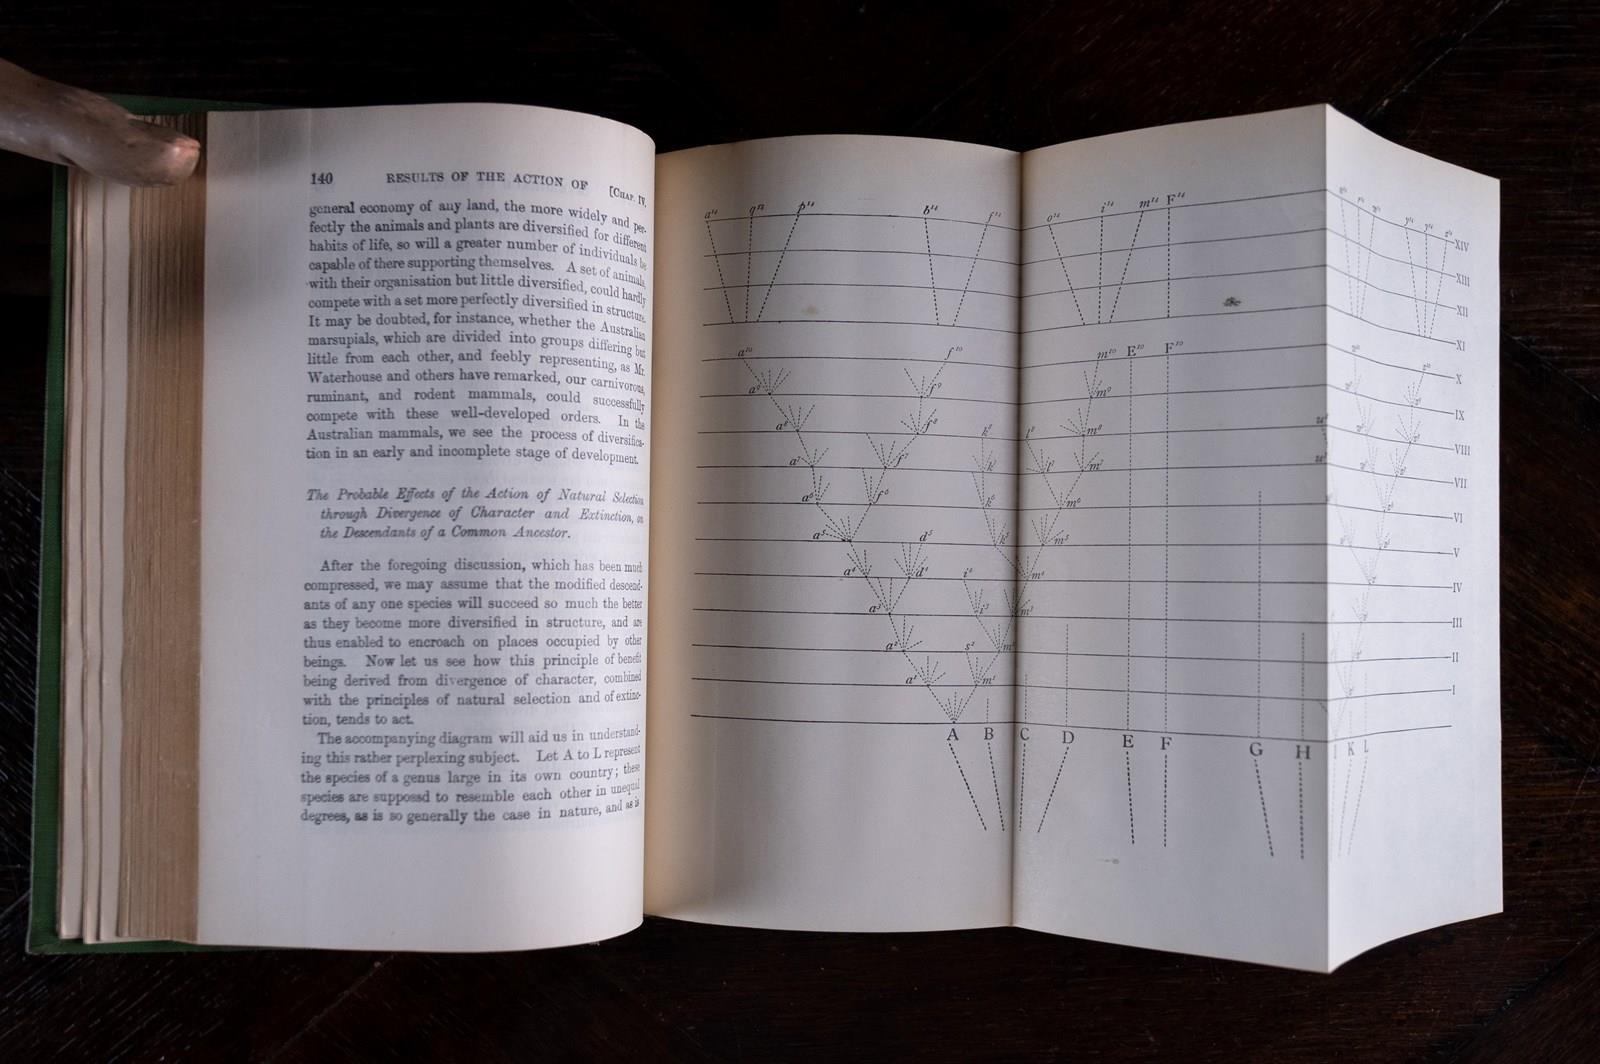 140 RESULTS OF THE ACTION OF [CHAP. IV.
general economy of any land, the more widely and per-
fectly the animals and plants are diversified for different
habits of life, so will a greater number of individuals be
capable of there supporting themselves. A set of animals,
with their organisation but little diversified, could hardly
compete with a set more perfectly diversified in structure.
It may be doubted, for instance, whether the Australian
marsupials, which are divided into groups differing but
little from each other, and feebly representing, as Mr.
Waterhouse and others have remarked, our carnivorous,
ruminant, and rodent mammals, could successfully
compete with these well-developed orders. In the
Australian mammals, we see the process of diversifica-
tion in an early and incomplete stage of development.
The Probable Effects of the Action of Natural Selection
through Divergence of Character and Extinction, on
the Descendants of a Common Ancestor.
After the foregoing discussion, which has been much
compressed, we may assume that the modified descend-
ants of any one species will succeed so much the better
as they become more diversified in structure, and are
thus enabled to encroach on places occupied by other
beings. Now let us see how this principle of benefit
being derived from divergence of character, combined
with the principles of natural selection and of extinc-
tion, tends to act.
The accompanying diagram will aid us in understand-
ing this rather perplexing subject. Let A to L represent
the species of a genus large in its own country; these
species are supposed to resemble each other in unequal
degrees, as is so generally the case in nature, and as is
a¹⁴ q¹⁴ p¹⁴ b¹⁴ f¹⁴ o¹⁴ i¹⁴ m¹⁴ F¹⁴
XIV
XIII
XII
XI
a¹⁰ f¹⁰ m¹⁰ E¹⁰ F¹⁰ z¹⁰ X
a⁹ f⁹ m⁹ IX
a⁸ f⁸ k⁸ l⁸ m⁸ VIII
a⁷ f⁷ k⁷ l⁷ m⁷ VII
a⁶ f⁶ k⁶ m⁶ VI
a⁵ d⁵ k⁵ m⁵ V
a⁴ d⁴ i⁴ m⁴ IV
a³ i³ m³ III
a² s² m² II
a¹ m¹ I
A B C D E F G H I K L